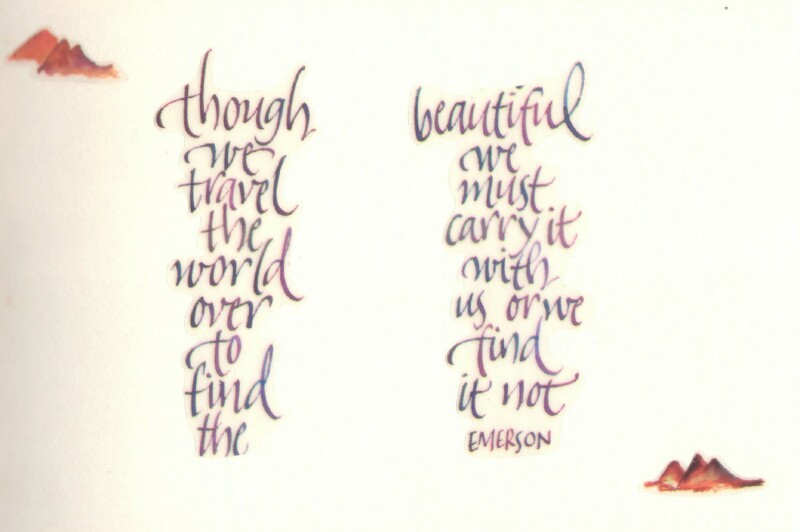 though
we
travel
the
world
over
to
find
the
beautiful
we
must
carry it
with
us or we
find
it not
EMERSON